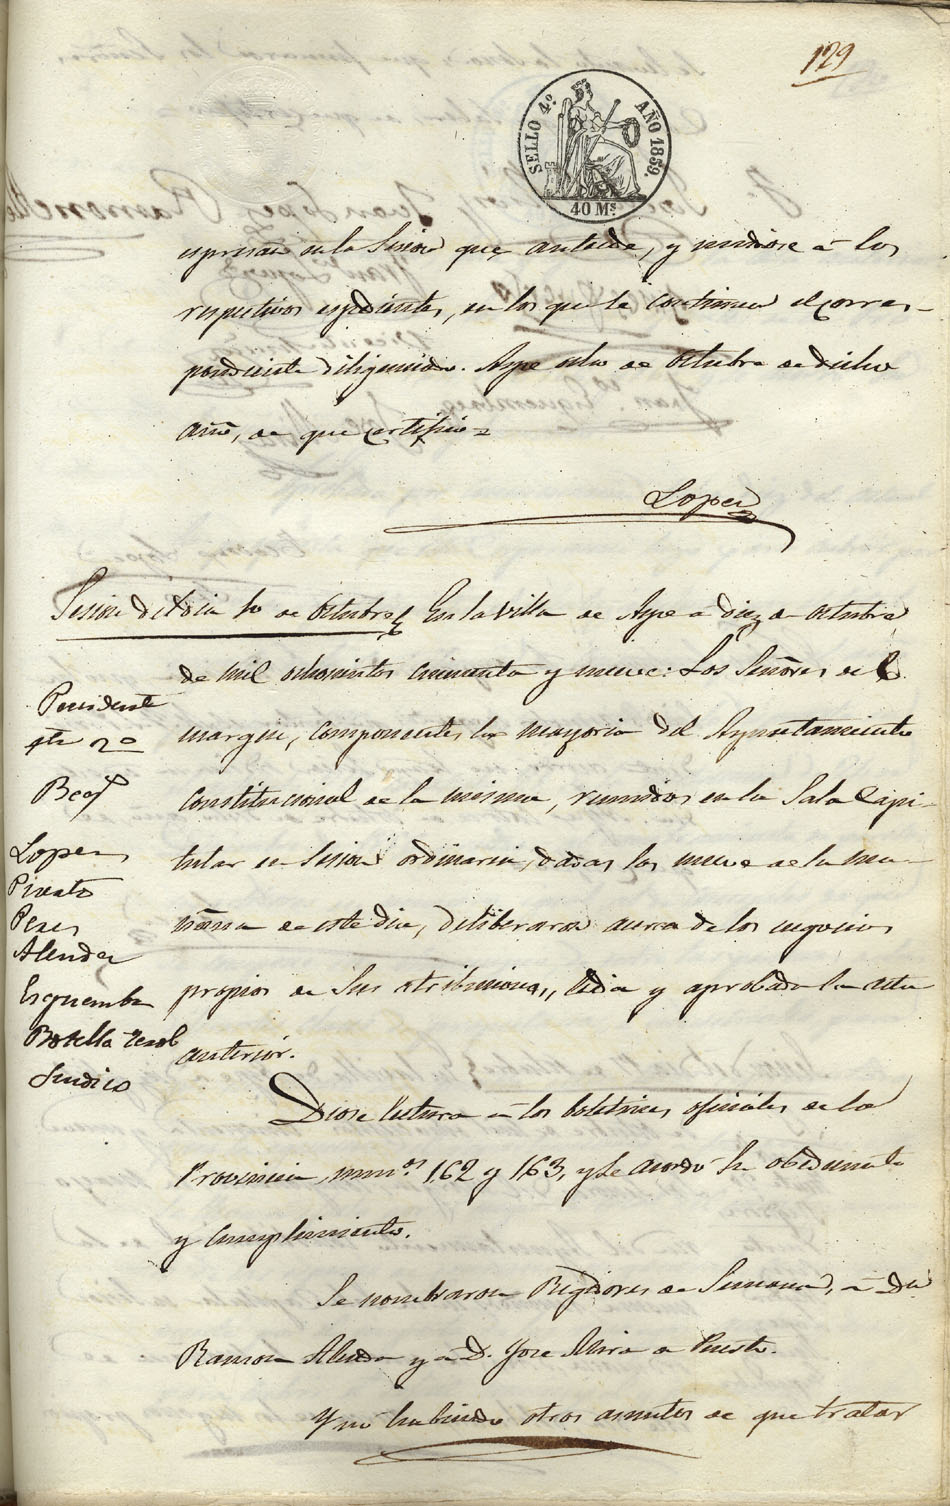 129
SELLO 4º AÑO 1859.
40 Ms
espresan en la Sesion que antecede, y unidose á los
respectivos espedientes, en los que se continua el corres-
pondiente diligenciado. Aspe ocho de Octubre de dicho
año, de que certifico=
Lopez
Sesion del dia 10 de Octubre En la villa de Aspe a diez de octubre
de mil ochocientos cincuenta y nueve: Los Señores del
margen, componentes la mayoria del Ayuntamiento
constitucional de la misma, reunidos en la Sala Capi-
tular en sesion ordinaria, dadas las nueve de la ma-
ñana de este dia, deliberaron acerca de los negocios
propios de sus atribuciones, leida y aprobada la acta
anterior.
Presidente
gte 2º
Lopez
Pérez
Alenda
Esquembre
Botella
Sindico
Diose lectura á los boletines oficiales de la
Provincia, numos 162 y 163, y se acordó su obedecimto
y cumplimiento.
Se nombraron Regidores de Semana, á Dn
Ramon Alenda y á D. Jose Mira de Puesto.
Y no habiendo otros asuntos de que tratar